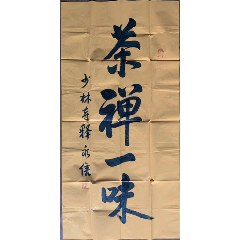 茶禅一味
少林寺释永信